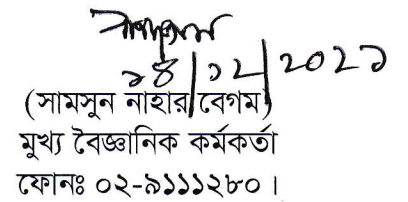 ১৪/১২/২০২১
(সামসুন নাহার বেগম)
মুখ্য বৈজ্ঞানিক কর্মকর্তা
ফোনঃ ০২-৯১১১২৮০।